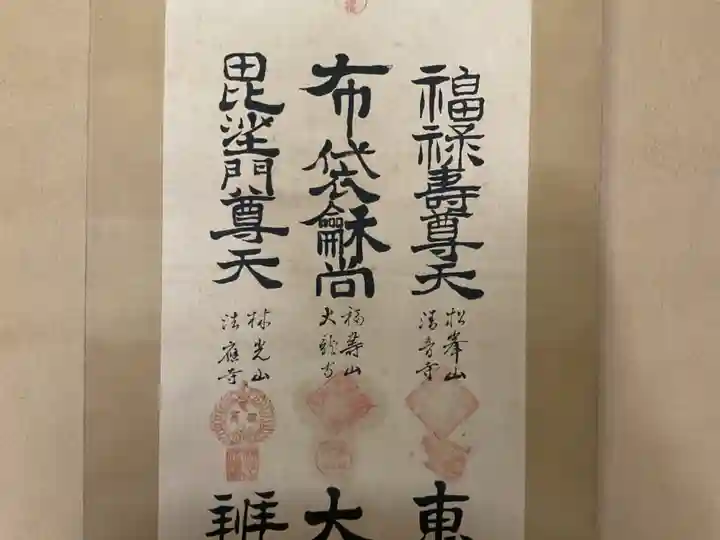 福禄壽尊天
松峯山
清音寺
布袋龢尚
福壽山
大龍寺
毘沙門尊天
林光山
法應寺
恵
大
辨